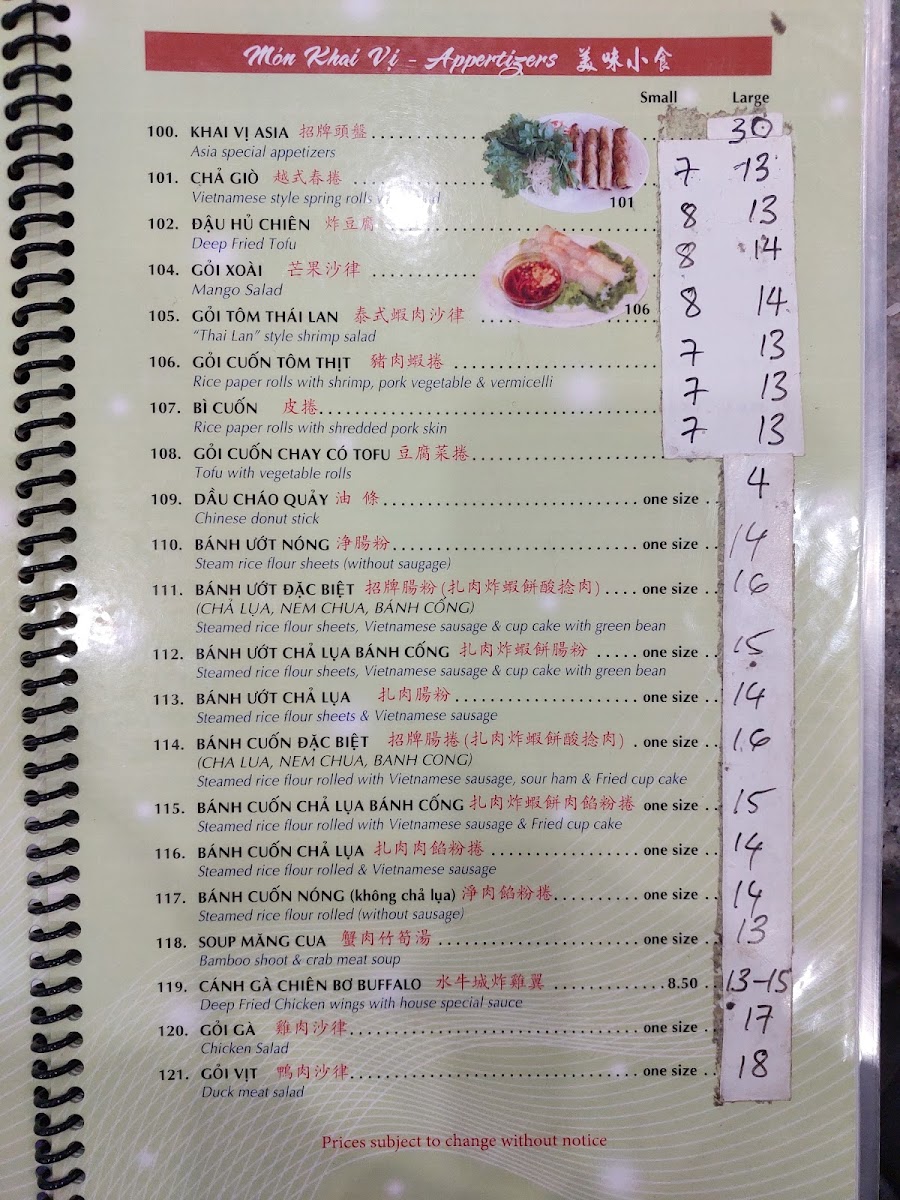 Món Khai Vị - Appertizers 美味小食
Small Large
100. KHAI VỊ ASIA 招牌頭盤 30
Asia special appetizers
101. CHẢ GIÒ 越式春捲 7 13
Vietnamese style spring rolls
101
102. ĐẬU HỦ CHIÊN 炸豆腐 8 13
Deep Fried Tofu
104. GỎI XOÀI 芒果沙律 8 14
Mango Salad
106
105. GỎI TÔM THÁI LAN 泰式蝦肉沙律 8 14
"Thai Lan" style shrimp salad
106. GỎI CUỐN TÔM THỊT 豬肉蝦捲 7 13
Rice paper rolls with shrimp, pork vegetable & vermicelli
107. BÌ CUỐN 皮捲 7 13
Rice paper rolls with shredded pork skin
108. GỎI CUỐN CHAY CÓ TOFU 豆腐菜捲 7 13
Tofu with vegetable rolls
109. DẦU CHÁO QUẢY 油 條 one size 4
Chinese donut stick
110. BÁNH ƯỚT NÓNG 净腸粉 one size 14
Steam rice flour sheets (without saugage)
111. BÁNH ƯỚT ĐẶC BIỆT 招牌腸粉(扎肉炸蝦餅酸捻肉) one size 16
(CHẢ LỤA, NEM CHUA, BÁNH CỐNG)
Steamed rice flour sheets, Vietnamese sausage & cup cake with green bean
112. BÁNH ƯỚT CHẢ LỤA BÁNH CỐNG 扎肉炸蝦餅腸粉 one size 15
Steamed rice flour sheets, Vietnamese sausage & cup cake with green bean
113. BÁNH ƯỚT CHẢ LỤA 扎肉腸粉 one size 14
Steamed rice flour sheets & Vietnamese sausage
114. BÁNH CUỐN ĐẶC BIỆT 招牌腸捲(扎肉炸蝦餅酸捻肉) one size 16
(CHA LUA, NEM CHUA, BANH CONG)
Steamed rice flour rolled with Vietnamese sausage, sour ham & Fried cup cake
115. BÁNH CUỐN CHẢ LỤA BÁNH CỐNG 扎肉炸蝦餅肉餡粉捲 one size 15
Steamed rice flour rolled with Vietnamese sausage & Fried cup cake
116. BÁNH CUỐN CHẢ LỤA 扎肉肉餡粉捲 one size 14
Steamed rice flour rolled & Vietnamese sausage
117. BÁNH CUỐN NÓNG (không chả lụa) 淨肉餡粉捲 one size 14
Steamed rice flour rolled (without sausage)
118. SOUP MĂNG CUA 蟹肉竹筍湯 one size 13
Bamboo shoot & crab meat soup
119. CÁNH GÀ CHIÊN BƠ BUFFALO 水牛城炸雞翼 8.50 13-15
Deep Fried Chicken wings with house special sauce
120. GỎI GÀ 雞肉沙律 one size 17
Chicken Salad
121. GỎI VỊT 鴨肉沙律 one size 18
Duck meat salad
Prices subject to change without notice